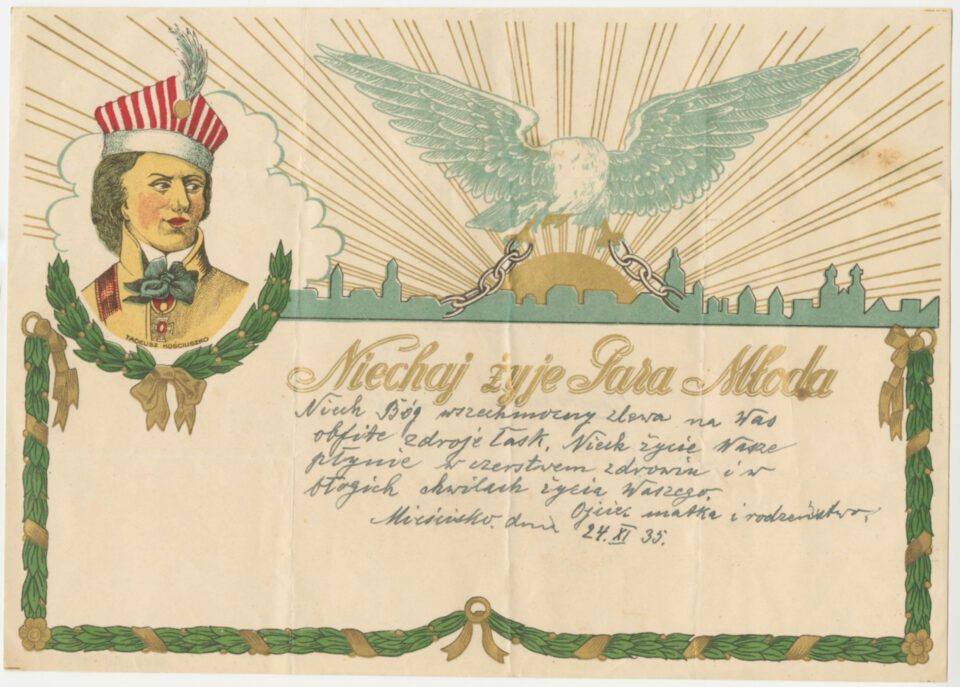 TADEUSZ KOŚCIUSZKO
Niechaj żyje Para Młoda
Niech Bóg wszechmocny zlewa na Was
obfite zdroje łask. Niech życie Wasze
płynie w czerstwem zdrowiu i w
błogich chwilach życia Waszego.
Ojciec matka i rodzeństwo,
Mieścisko. dnia 24. XI 35.